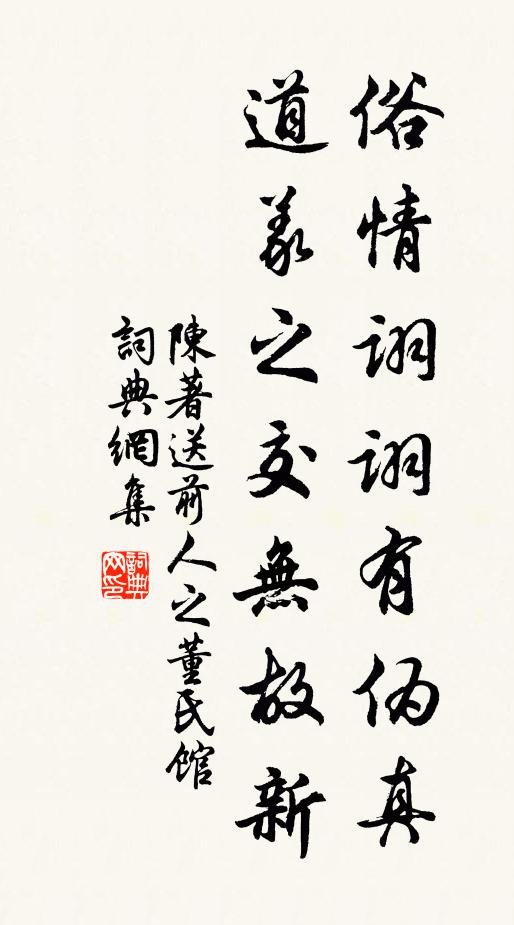 俗情詡詡有伪真
道義之交無故新
陳著送前人之董氏館
詞典網集
詞典网印